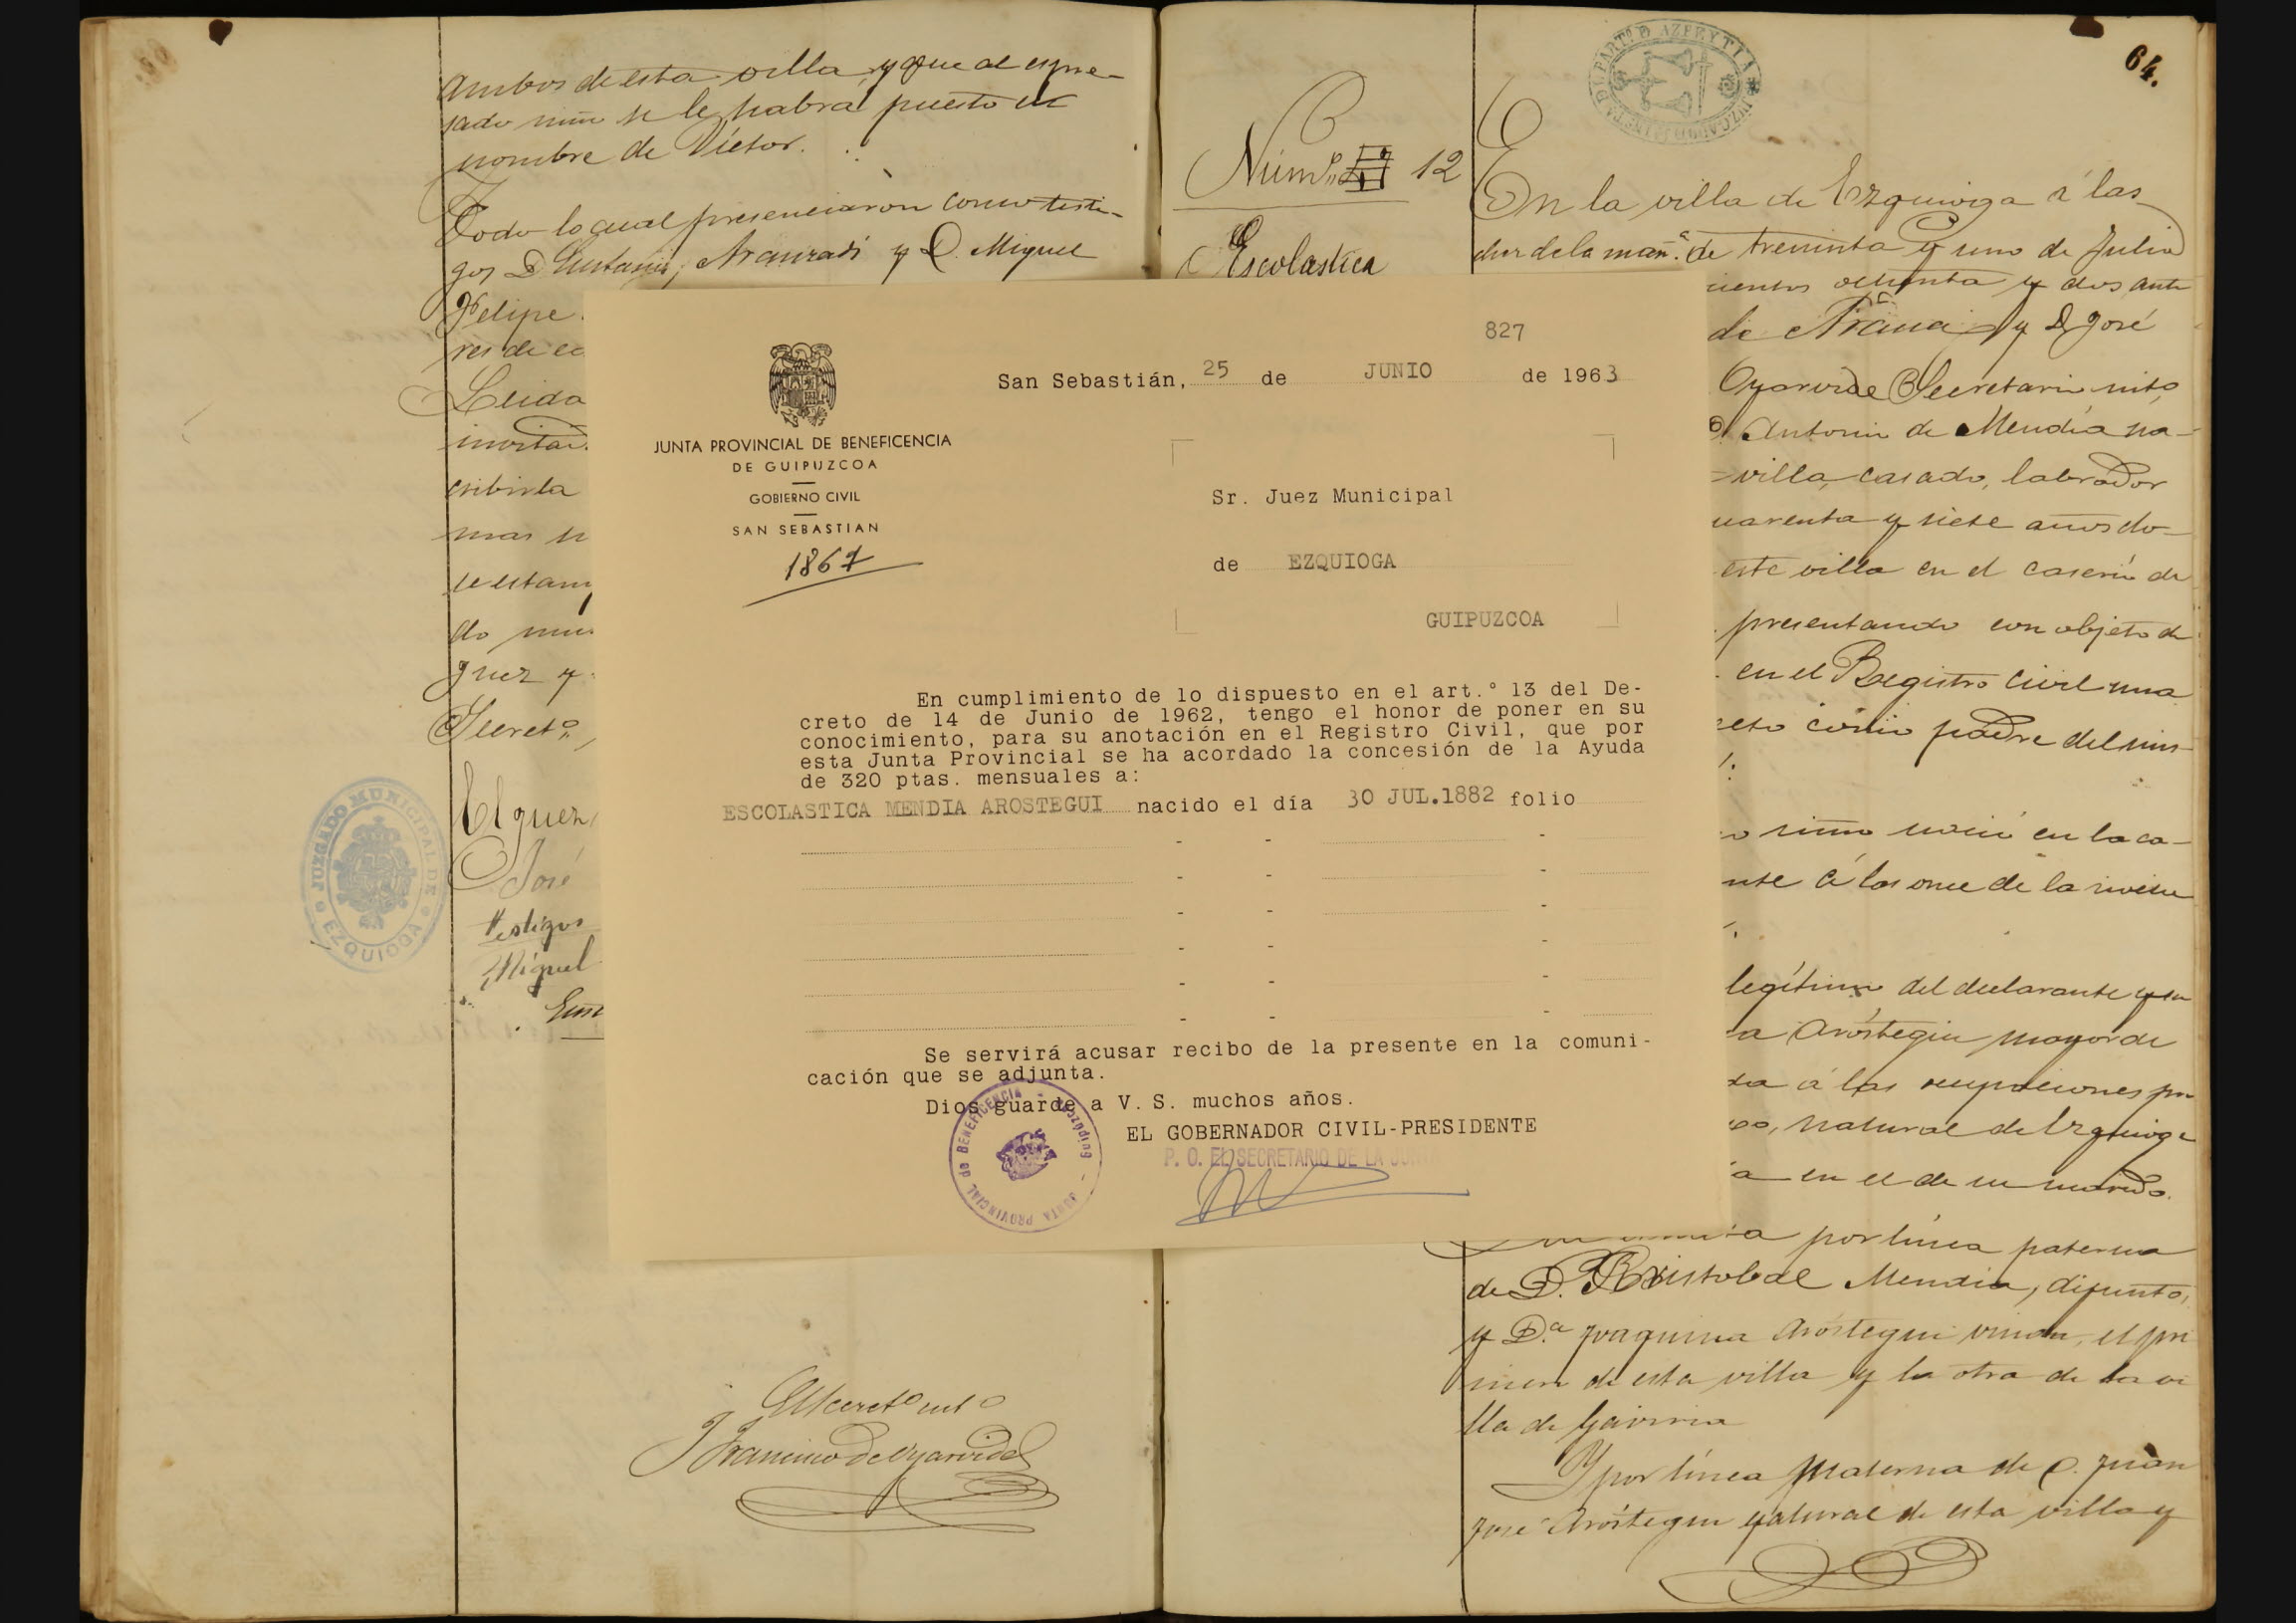 Ambos de esta villa, y que al espre-
sado niño se le habrá puesto el
nombre de Víctor.
Todo lo cual presenciaron como testi-
gos D. Eustasio Aranzadi y D. Miguel
Felipe
res de
Leida
invitan
cribirla
mas
se estam
do
Juez y
Secret.º
El Juez
José
testigos
Miguel
JUZGADO MUNICIPAL DE
EZQUIOGA
El Secret.º
Francisco de Oyarvide
64.
PART.º D AZPEYTIA
Núm.º 12
Escolastica
En la villa de Ezquioga á las
de la mañ.ª de treinta y uno de Julio
cientos ochenta y dos ante
de Arana y D. José
Oyarvide Secretario
Antonio de Mendía na-
villa, casado, labrador
uarenta y siete años do-
este villa en el caserío de
presentando con objeto de
en el Registro Civil una
como padre del mis-
niño nació en la ca-
á las once de la
legítimo del declarante y su
Aróstegui mayor de
á las ocupaciones
natural de Ezquioga
en el de su marido.
por línea paterna
de D. Cristobal Mendia, difunto,
y D.ª Joaquina Aróstegui el pri
mero de esta villa y la otra de la vi
lla de Gaviria
Y por línea materna de D. Juan
José Aróstegui natural de esta villa y
827
San Sebastián, 25 de JUNIO de 1963
JUNTA PROVINCIAL DE BENEFICENCIA
DE GUIPUZCOA
GOBIERNO CIVIL
SAN SEBASTIAN
1867
Sr. Juez Municipal
de EZQUIOGA
GUIPUZCOA
En cumplimiento de lo dispuesto en el art.° 13 del De-
creto de 14 de Junio de 1962, tengo el honor de poner en su
conocimiento, para su anotación en el Registro Civil, que por
esta Junta Provincial se ha acordado la concesión de la Ayuda
de 320 ptas. mensuales a:
ESCOLASTICA MENDIA AROSTEGUI nacido el día 30 JUL.1882 folio
Se servirá acusar recibo de la presente en la comuni-
cación que se adjunta.
Dios guarde a V. S. muchos años.
EL GOBERNADOR CIVIL-PRESIDENTE
P. O. EL SECRETARIO DE LA JUNTA
JUNTA PROVINCIAL de BENEFICENCIA - Guipúzcoa -